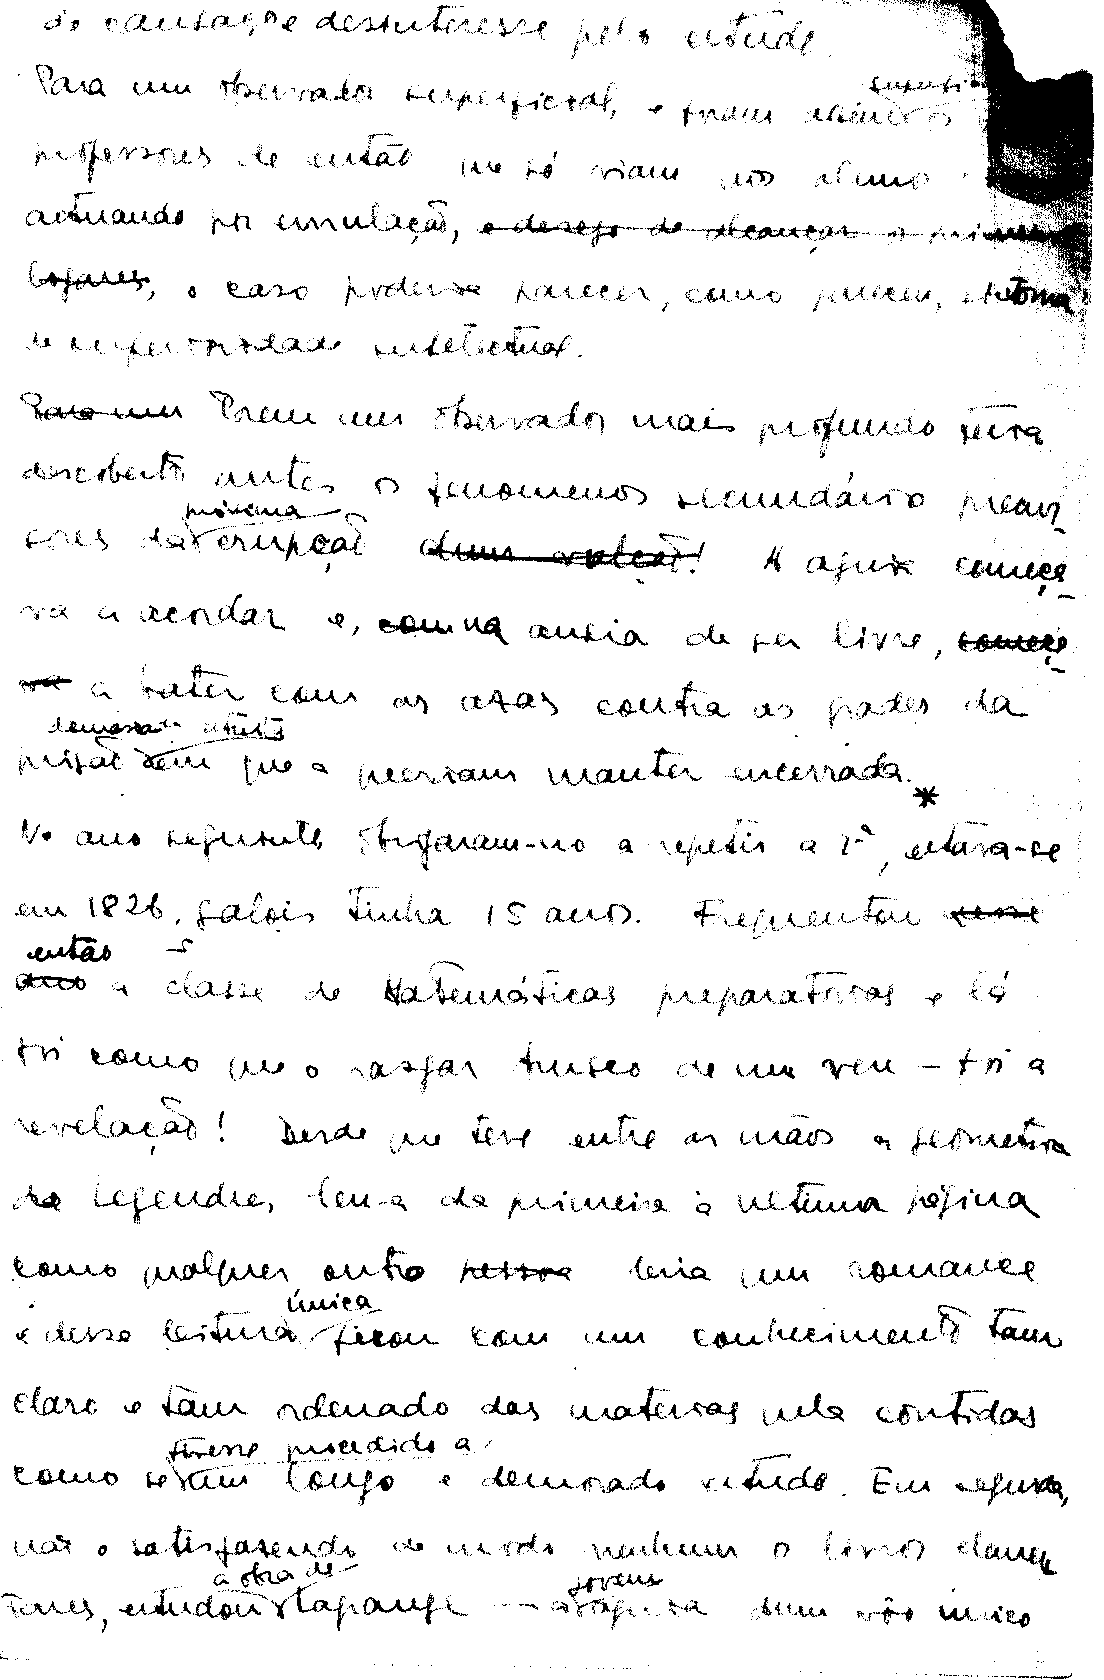 de cansaço e desinteresse pelo estudo.
Para um observador superficial, e foram assim os
professores de então que só viam nos alunos
actuando por emulação, e desejo de alcançar os primeiros
logares, o caso poderia parecer, como pareceu, sintoma
de inferioridade intelectual.
Para um Porem um observador mais profundo teria
descoberto antes os fenomenos secundários precur-
próxima
sores da erupção dum vulcão! A aguia começa-
va a acordar e, com na ansia de ser livre, começa-
va a bater com as azas contra as grades da
demasiado estreita
prisão em que a queriam manter encerrada.*
No ano seguinte obrigaram-no a repetir a 2ª, estava-se
em 1826, Galois tinha 15 anos. Frequentou nesse
então
ano a classe de Matemáticas preparatorias e lá
foi como que o rasgar brusco de um veu – foi a
revelação! Desde que teve entre as mãos a geometria
de Legendre, leu-a da primeira à ultima página
como qualquer outro pessoa leria um romance
única
e dessa leitura ficou com um conhecimento tam
claro e tam ordenado das materias nela contidas
tivesse procedido a
como se um longo e demorado estudo. Em seguida,
não o satisfazendo de modo nenhum os livros elemen-
a obra de
jovem
tares, estudou Lagrange — a aguia dum vôo unico